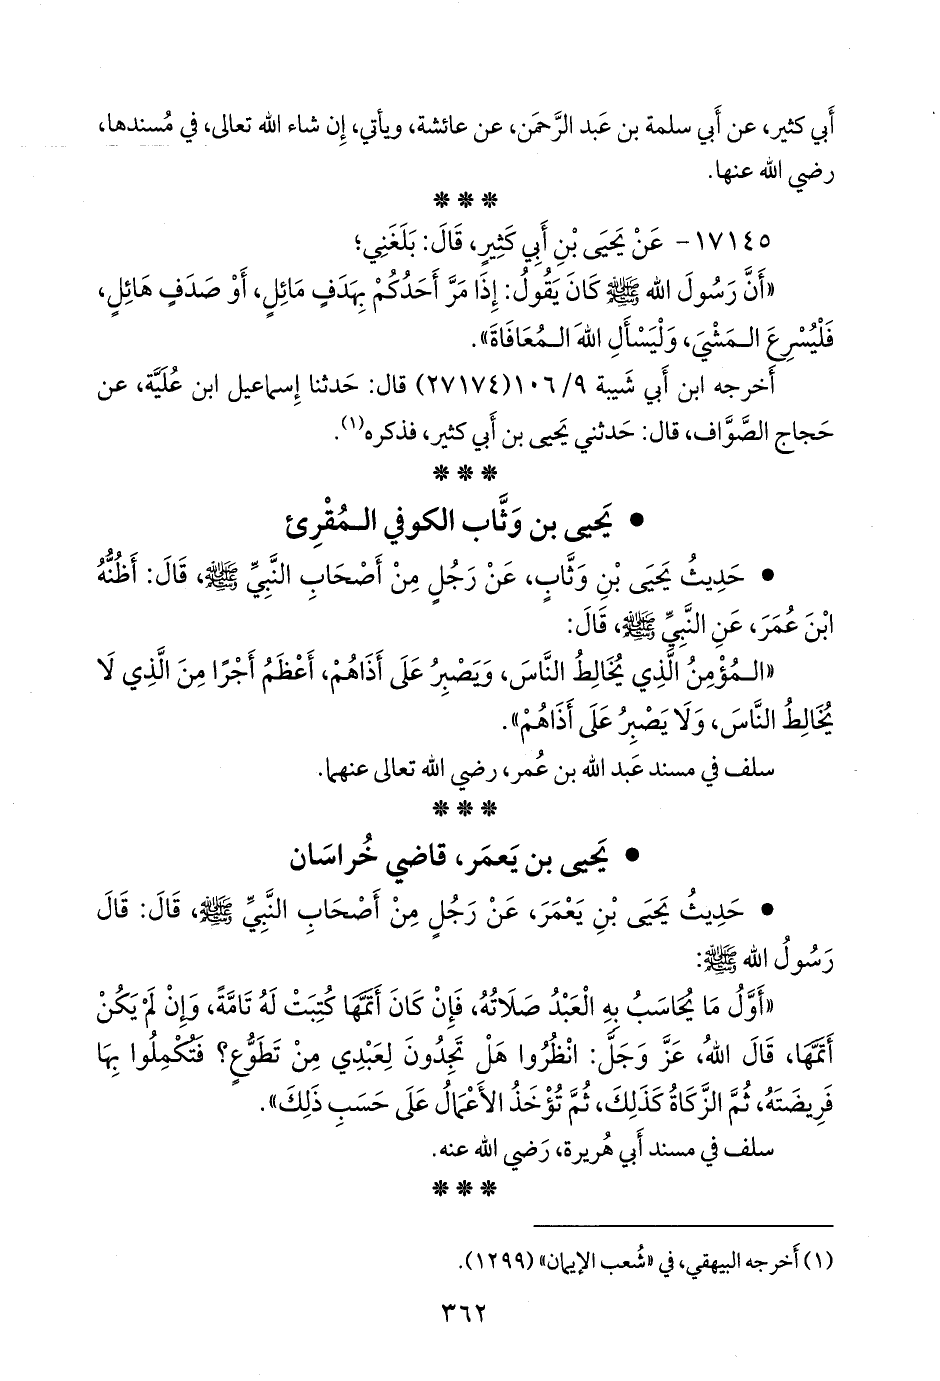 أَبي كثير، عن أَبي سلمة بن عَبد الرَّحمَن، عن عائشة، ويأتي، إِن شاء الله تعالى، في مُسندها،
رضي الله عنها.
* * *
١٧١٤٥- عَنْ يَحْيَى بْنِ أَبِي كَثِيرٍ، قَالَ: بَلَغَنِي؛
«أَنَّ رَسُولَ الله ﷺ كَانَ يَقُولُ: إِذَا مَرَّ أَحَدُكُمْ بِهَدَفٍ مَائِلٍ، أَوْ صَدَفٍ هَائِلٍ،
فَلْيُسْرِعَ الـمَشْيَ، وَلْيَسْأَلِ اللهَ الـمُعَافَاةَ».
أَخرجه ابن أَبي شَيبة ٩/ ١٠٦(٢٧١٧٤) قال: حَدثنا إِسماعيل ابن عُلَيَّة، عن
حَجاج الصَّوَّاف، قال: حَدثني يَحيى بن أَبي كثير، فذكره(١).
* * *
• يَحيى بن وَثَّاب الكوفي الـمُقْرِئ
• حَدِيثُ يَحْيَى بْنِ وَثَّابٍ، عَنْ رَجُلٍ مِنْ أَصْحَابِ النَّبِيِّ ﷺ، قَالَ: أَظُنُّهُ
ابْنَ عُمَرَ، عَنِ النَّبِيِّ ﷺ، قَالَ:
«الـمُؤْمِنُ الَّذِي يُخَالِطُ النَّاسَ، وَيَصْبِرُ عَلَى أَذَاهُمْ، أَعْظَمُ أَجْرًا مِنَ الَّذِي لَا
يُخَالِطُ النَّاسَ، وَلَا يَصْبِرُ عَلَى أَذَاهُمْ».
سلف في مسند عَبد الله بن عُمر، رضي الله تعالى عنهما.
* * *
• يَحيى بن يَعمَر، قاضي خُراسَان
• حَدِيثُ يَحْيَى بْنِ يَعْمَرَ، عَنْ رَجُلٍ مِنْ أَصْحَابِ النَّبِيِّ ﷺ، قَالَ: قَالَ
رَسُولُ الله ﷺ:
«أَوَّلُ مَا يُحَاسَبُ بِهِ الْعَبْدُ صَلَاتُهُ، فَإِنْ كَانَ أَتَمَّهَا كُتِبَتْ لَهُ تَامَّةً، وَإِنْ لَمْ يَكُنْ
أَتَمَّهَا، قَالَ اللهُ، عَزَّ وَجَلَّ: انْظُرُوا هَلْ تَجِدُونَ لِعَبْدِي مِنْ تَطَوُّعٍ؟ فَتُكْمِلُوا بِهَا
فَرِيضَتَهُ، ثُمَّ الزَّكَاةُ كَذَلِكَ، ثُمَّ تُؤْخَذُ الأَعْمَالُ عَلَى حَسَبِ ذَلِكَ».
سلف في مسند أَبي هُريرة، رَضي الله عنه.
* * *
(١) أَخرجه البيهقي، في «شُعب الإِيمان» (١٢٩٩).
٣٦٢